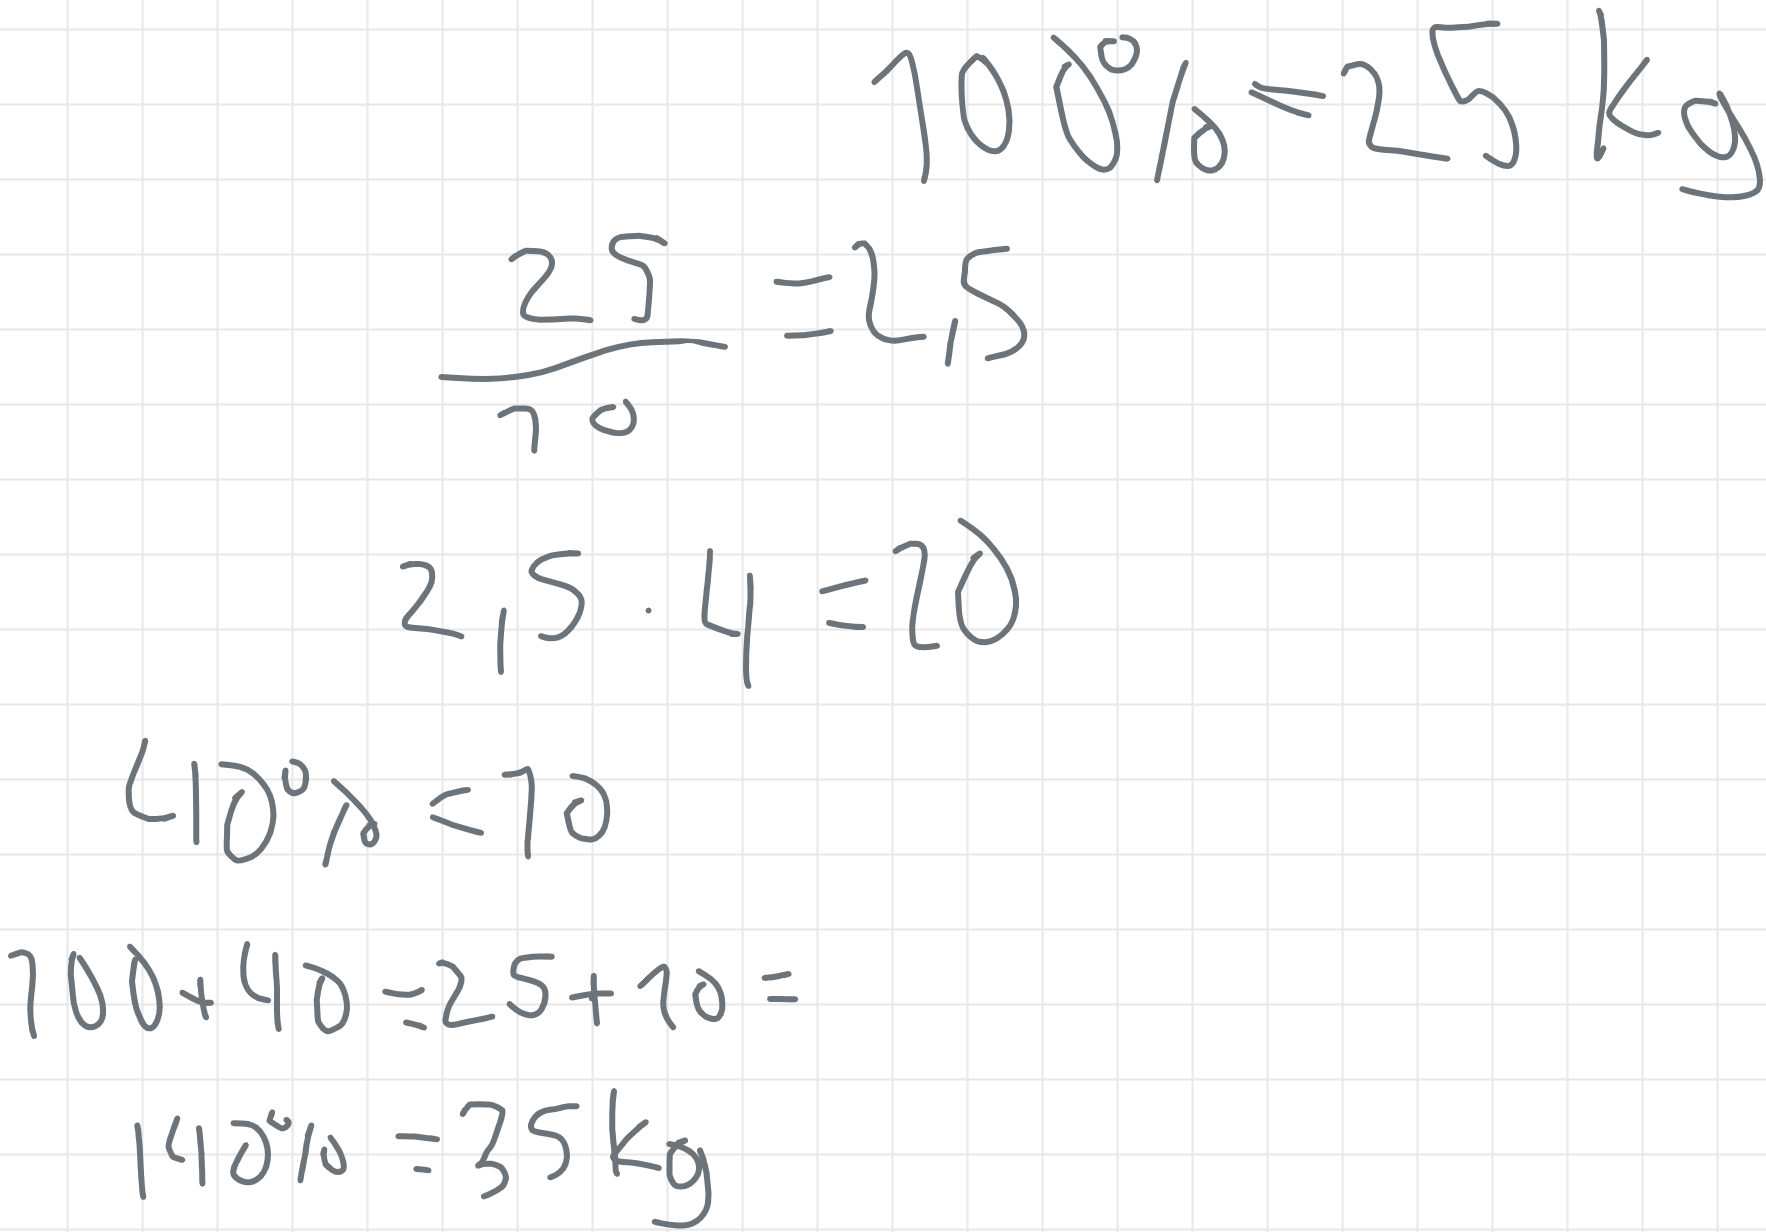 100%=25 kg
25/10 = 2,5
2,5 · 4 = 20
40% = 10
100+40=25+10=
140% = 35 kg